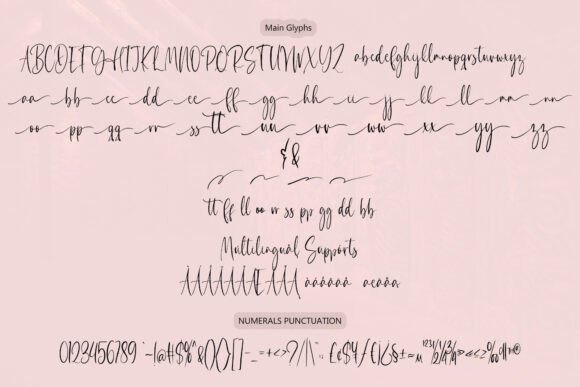 Main Glyphs
ABCDEFGHIJKLMNOPQRSTUVWXYZ abcdefghijklmnopqrstuvwxyz
aa bb cc dd ee ff gg hh ii jj kk ll mm nn
oo pp qq rr ss tt uu vv ww xx yy zz
&
tt ff ll oo rr ss pp gg dd bb
Multilingual Supports
NUMERALS PUNCTUATION
0123456789 ~!@#$%^&(){}[] -_=+<>?/|\